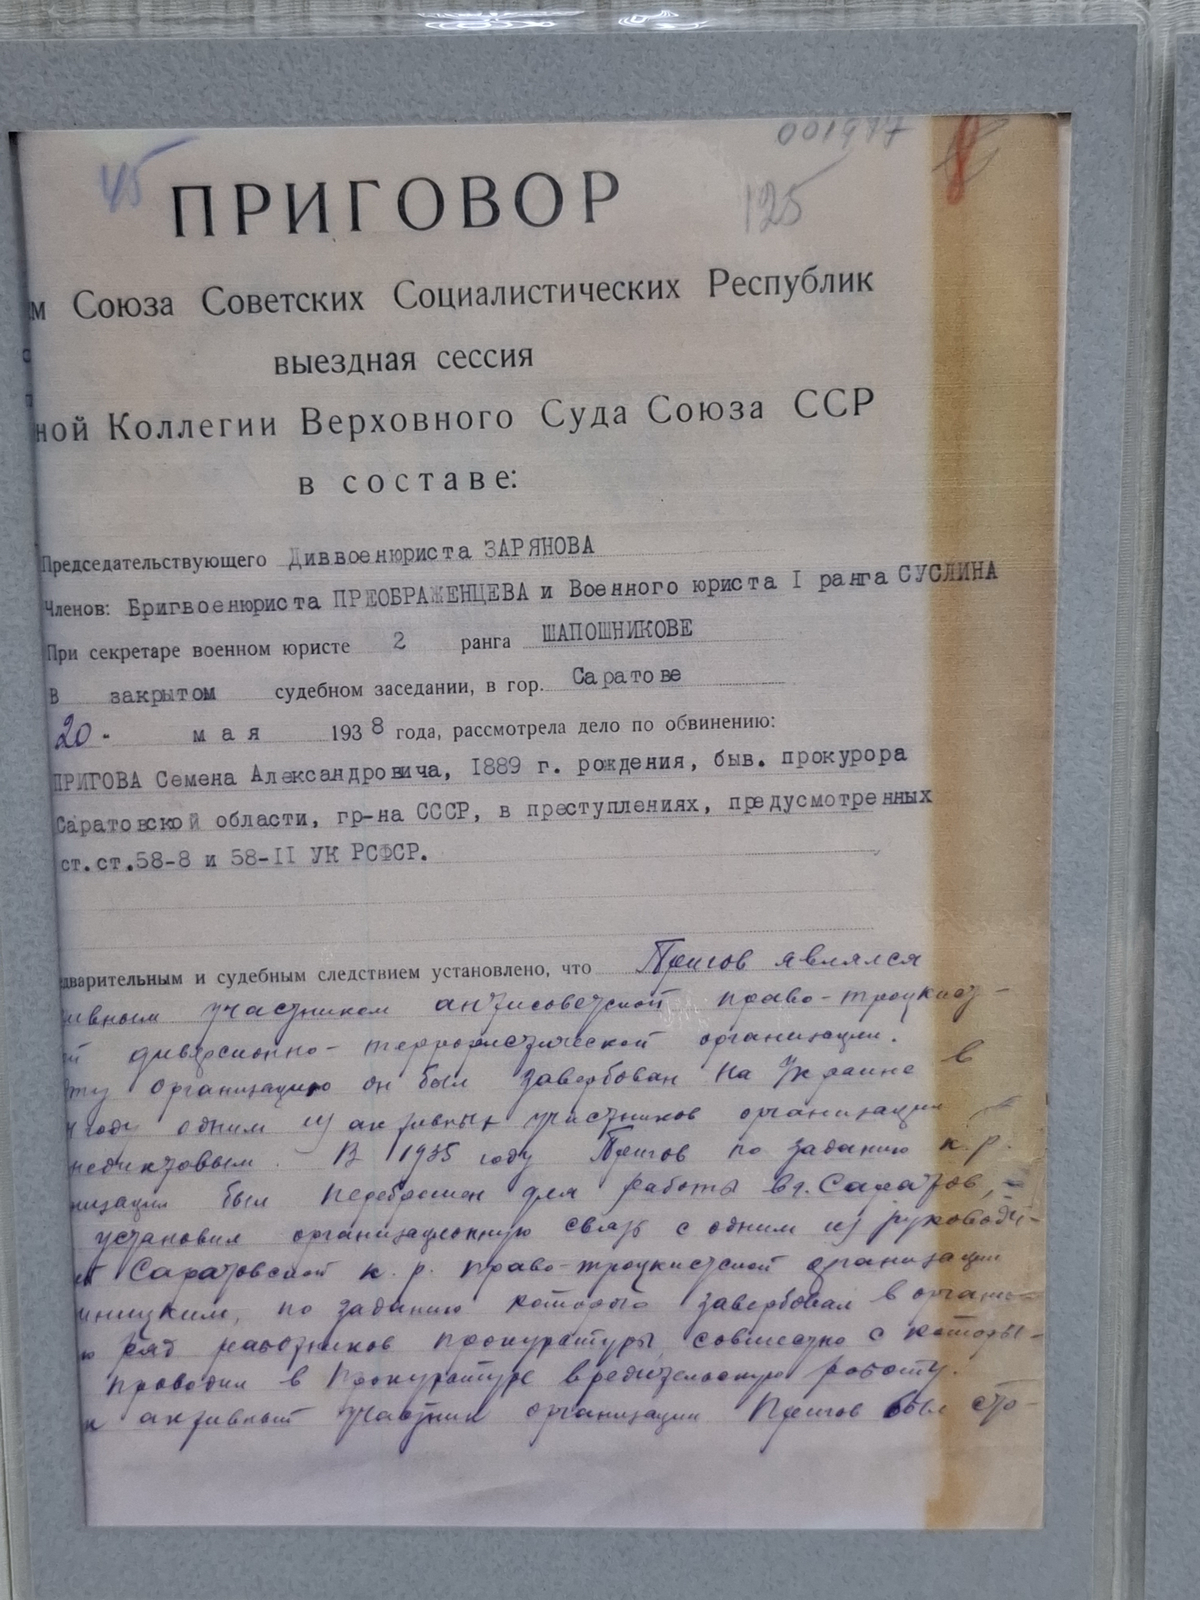 001977
45
125
8
ПРИГОВОР
м Союза Советских Социалистических Республик
выездная сессия
ной Коллегии Верховного Суда Союза ССР
в составе:
Председательствующего Диввоенюриста ЗАРЯНОВА
Членов: Бригвоенюриста ПРЕОБРАЖЕНЦЕВА и Военного юриста I ранга СУСЛИНА
При секретаре военном юристе 2 ранга ШАПОШНИКОВЕ
В закрытом судебном заседании, в гор. Саратове
20- мая 1938 года, рассмотрела дело по обвинению:
ПРИГОВА Семена Александровича, 1889 г. рождения, быв. прокурора
Саратовской области, гр-на СССР, в преступлениях, предусмотренных
ст.ст.58-8 и 58-II УК РСФСР.
дварительным и судебным следствием установлено, что Пригов являлся
ивным участником антисоветской право-троцкист-
й диверсионно-террористической организации.
эту организацию он был завербован на Украине в
году одним из активных участников организации
недиктовым. В 1935 году Пригов по заданию к.р.
низации был переброшен для работы в г. Саратов,
установил организационную связь с одним из руководи-
й Саратовской к.р. право-троцкистской организации
иницким, по заданию которого завербовал в органи-
ю ряд работников прокуратуры, совместно с которы-
проводил в Прокуратуре вредительскую работу.
к активный участник организации Пригов был сто-